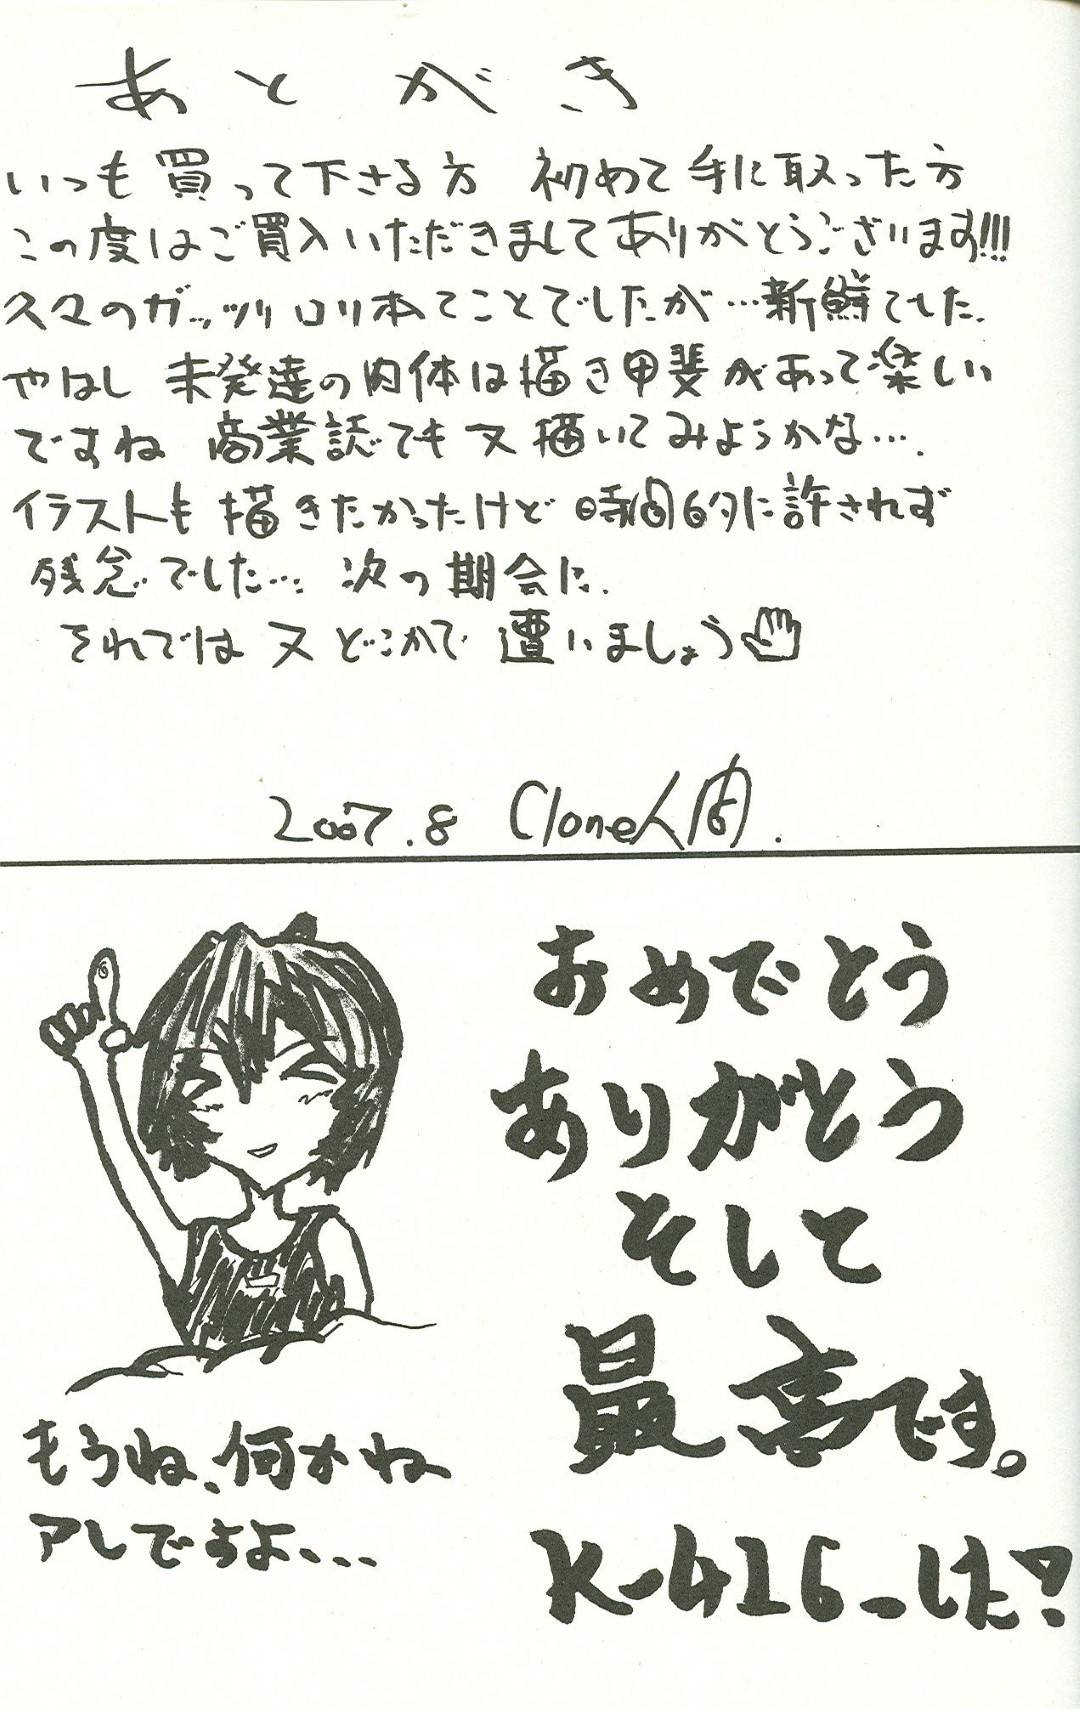 あとがき
いつも買って下さる方 初めて手に取った方
この度はご買入いただきましてありがとうございます!!!
久々のガッツリロリ本てことでしたが…新鮮でした.
やはし 未発達の肉体は描き甲斐があって楽しい
ですね 商業誌でも又描いてみようかな….
イラストも描きたかったけど 時間的に許されず
残念でした…. 次の期会に.
それでは 又 どこかで 遭いましょう
2007.8 Clone人間.
おめでとう
ありがとう
そして
最高です。
K-416-した?
もうね、何かね
アレですよ、、、